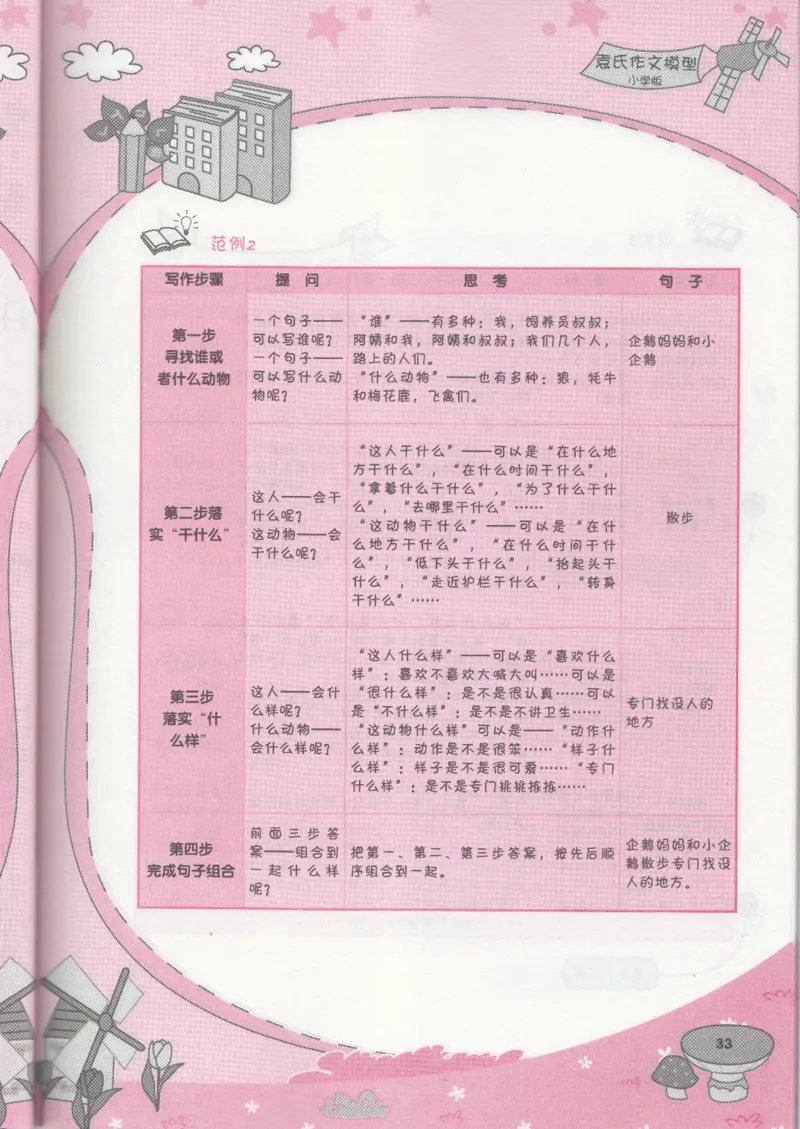 袁氏作文模型
小学版
范例2
写作步骤 提 问 思 考 句 子
第一步
寻找谁或
者什么动物
一个句子——
可以写谁呢？
一个句子——
可以写什么动
物呢？
“谁”——有多种：我，饲养员叔叔；
阿姨和我，阿姨和叔叔；我们几个人，
路上的人们。
“什么动物”——也有多种：狼，牦牛
和梅花鹿，飞禽们。
企鹅妈妈和小
企鹅
第二步落
实“干什么”
这人——会干
什么呢？
这动物——会
干什么呢？
“这人干什么”——可以是“在什么地
方干什么”，“在什么时间干什么”，
“拿着什么干什么”，“为了什么干什
么”，“去哪里干什么”……
“这动物干什么”——可以是“在什
么地方干什么”，“在什么时间干什
么”，“低下头干什么”，“抬起头干
什么”，“走近护栏干什么”，“转身
干什么”……
散步
第三步
落实“什
么样”
这人——会什
么样呢？
什么动物——
会什么样呢？
“这人什么样”——可以是“喜欢什么
样”：喜欢不喜欢大喊大叫……可以是
“很什么样”：是不是很认真……可以
是“不什么样”：是不是不讲卫生……
“这动物什么样”可以是——“动作什
么样”：动作是不是很笨……“样子什
么样”：样子是不是很可爱……“专门
什么样”：是不是专门挑挑拣拣……
专门找没人的
地方
第四步
完成句子组合
前面三步答
案——组合到
一起什么样
呢？
把第一、第二、第三步答案，按先后顺
序组合到一起。
企鹅妈妈和小企
鹅散步专门找没
人的地方。
33